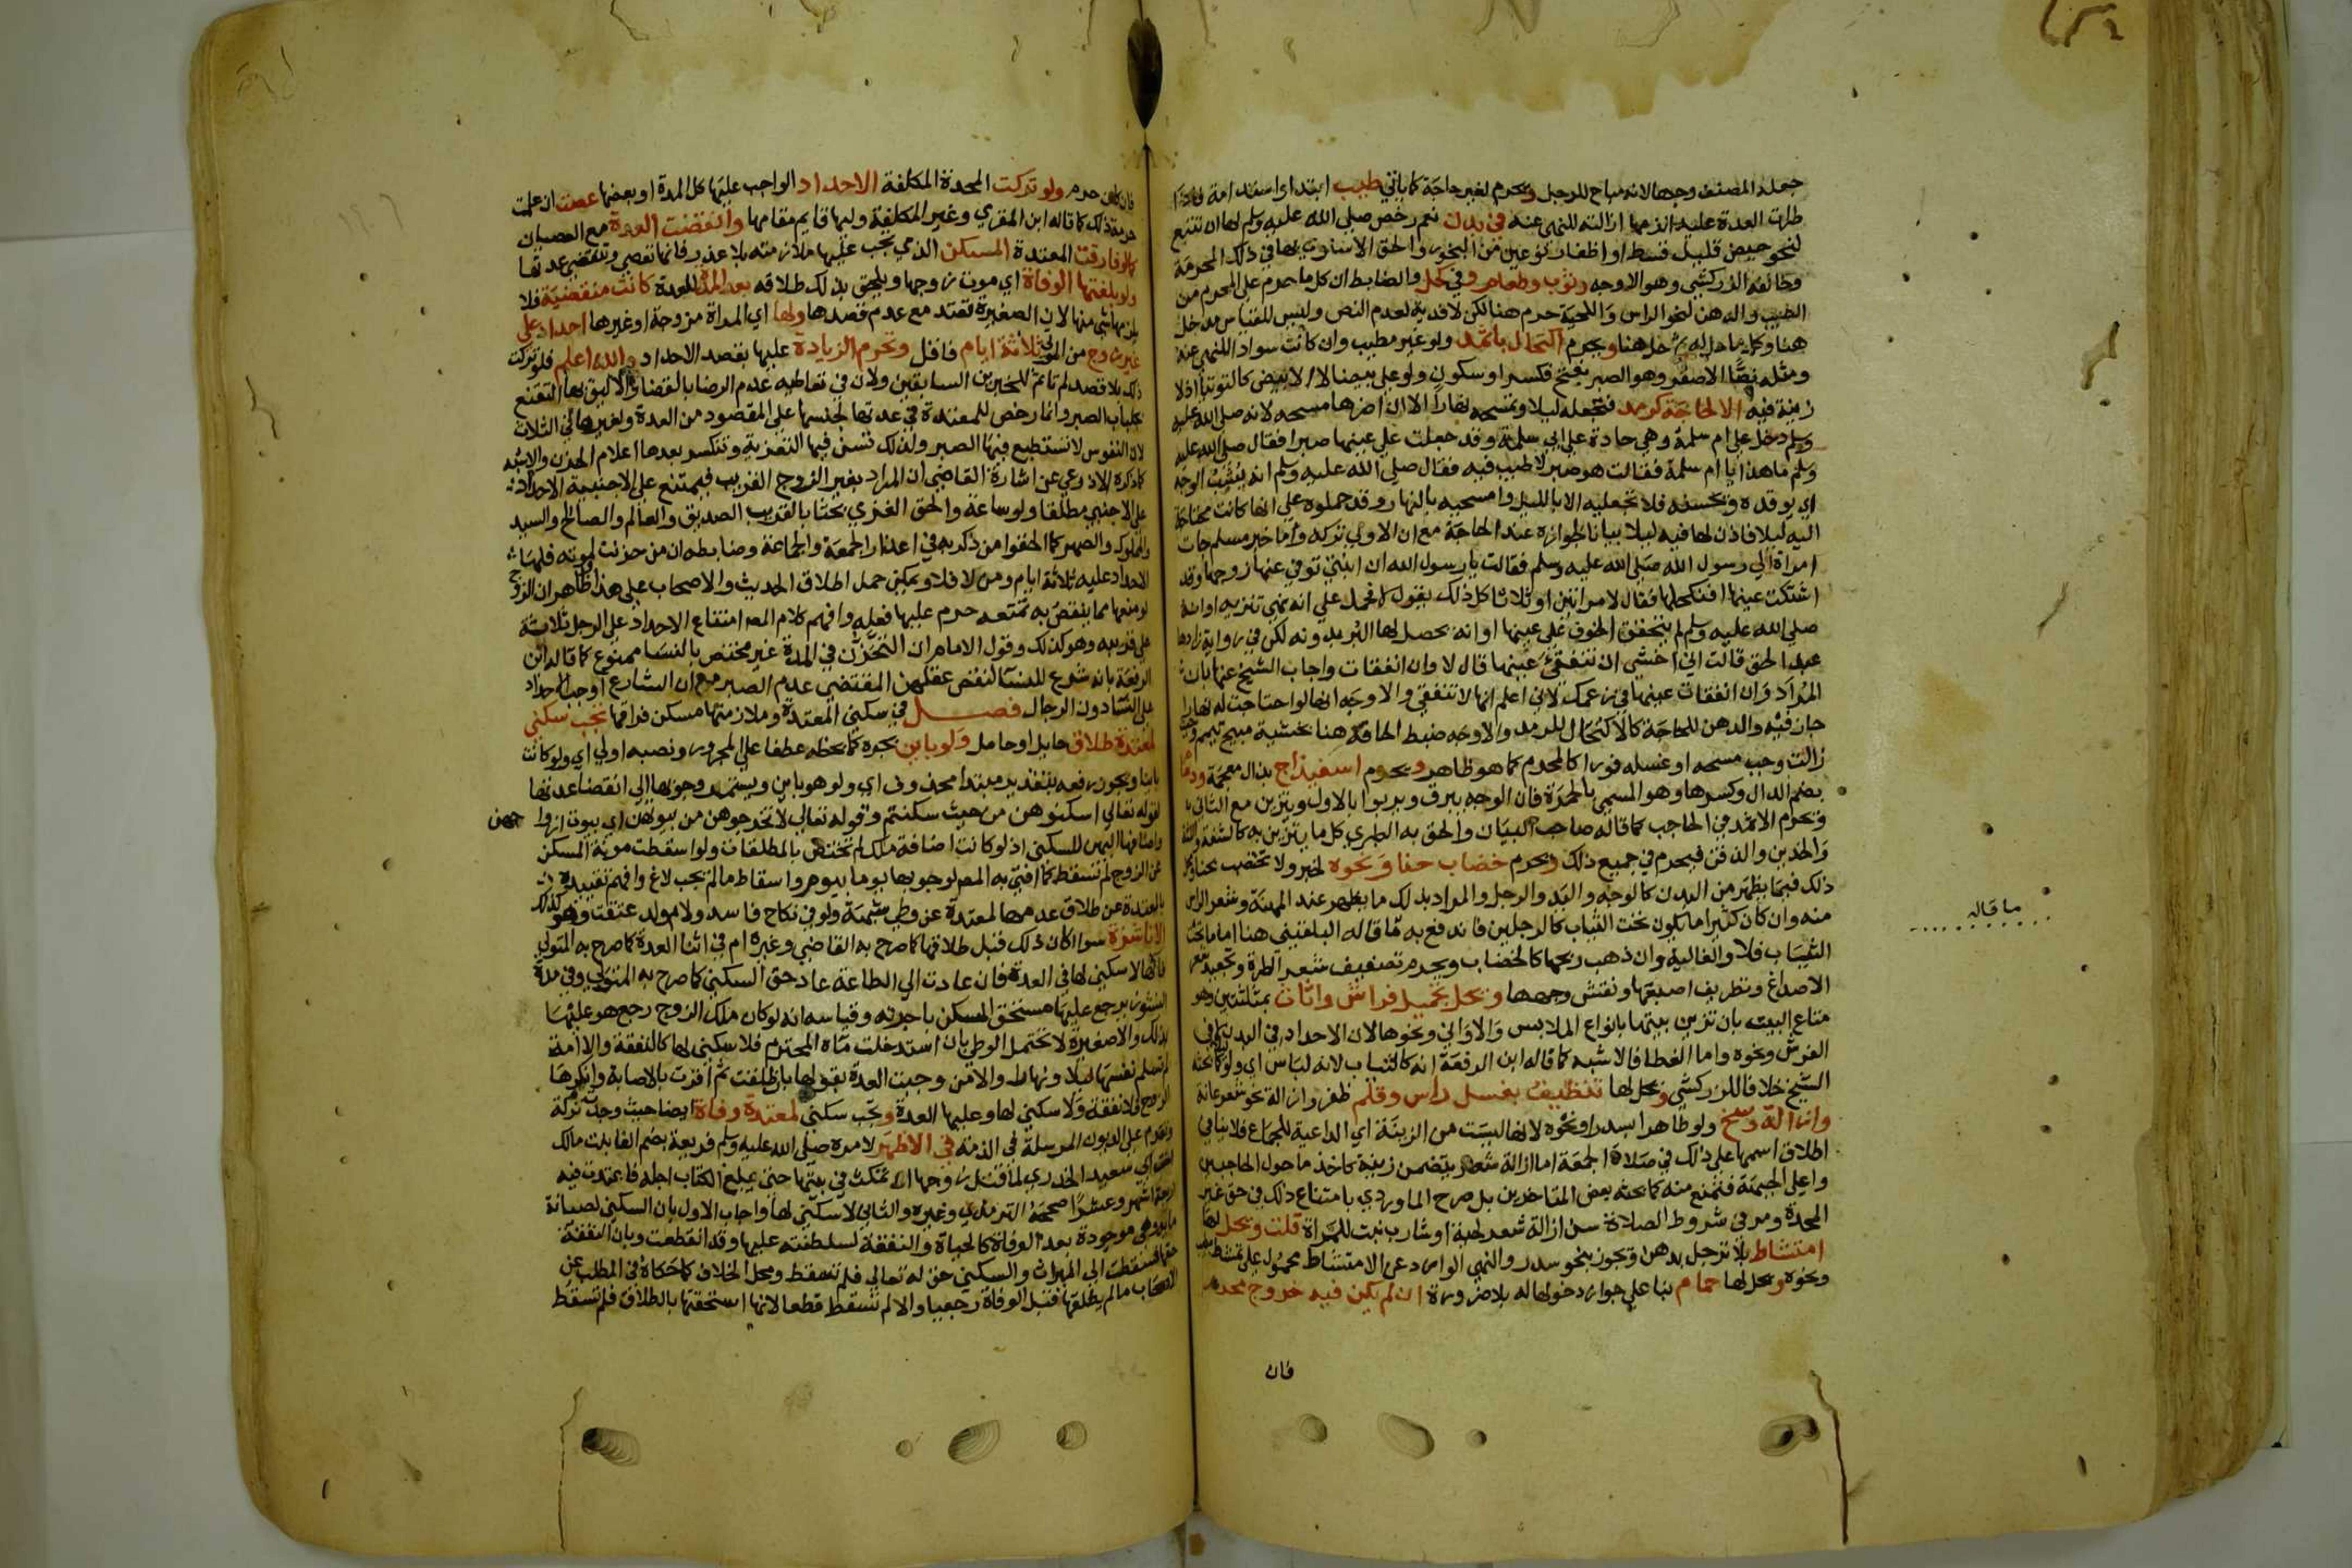 جعله المصنف وجها لانه مباح للرجل ويحرم لغير حاجة كما ياتي طيب ابتداء واستدامة فاذا
طرات العدة عليه لزمها ازالته للنهي عنه في بدن نعم رخص صلى الله عليه وسلم لها ان تتبع
لنحو حيض قليل قسط او اظفار نوعين من البخور والحق الاسنوي بها في ذلك المحرمة
وخالفه الزركشي وهو الاوجه وثوب وطعام وفي كحل والضابط ان كل ما حرم على المحرم من
الطيب والدهن لنحو الراس واللحية حرم هنا لكن لا فدية لعدم النص وليس للقياس مدخل
هنا وكل ما حل له ثم حل هنا ويحرم اكتحال باثمد ولو غير مطيب وان كانت سوداء للنهي عنه
ومثله نصا الاصفر وهو الصبر بفتح فكسر او سكون ولو على بيضا لا الابيض كالتوتيا اذ لا
زينة فيه الا لحاجة كرمد فتجعله ليلا وتمسحه نهارا الا ان اضرها مسحه لانه صلى الله عليه
وسلم دخل على ام سلمة وهي حادة على ابي سلمة وقد جعلت على عينها صبرا فقال صلى الله عليه
وسلم ما هذا يا ام سلمة فقالت هو صبر لا طيب فيه فقال صلى الله عليه وسلم انه يشب الوجه
اي يوقده ويحسنه فلا تجعليه الا بالليل وامسحيه بالنهار وقد حملوه على انها كانت محتاجة
اليه ليلا فاذن لها فيه ليلا بيانا لجوازه عند الحاجة مع ان الاولى تركه واما خبر مسلم جات
امراة الي رسول الله صلى الله عليه وسلم فقالت يا رسول الله ان ابنتي توفي عنها زوجها وقد
اشتكت عينها افنكحلها فقال لا مرتين او ثلاثا كل ذلك يقول لا فحمل على انه نهي تنزيه او انه
صلى الله عليه وسلم لم يتحقق الخوف على عينها او انه يحصل لها البرء بدونه لكن في رواية زادها
عبد الحق قالت اني اخشى ان تنفقئ عينها قال لا وان انفقات واجاب الشيخ عنها بان
المراد وان انفقات عينها في زعمك لاني اعلم انها لا تنفقئ والاوجه انها لو احتاجت له نهارا
جاز فيه والدهن للحاجة كالاكتحال للرمد والاوجه ضبط الحاجة هنا بخشية مبيح تيمم وحيث
زالت وجب مسحه او غسله فورا كالمحرم كما هو ظاهر ويحرم اسفيذاج بذال معجمة ودمام
بضم الدال وكسرها وهو المسمى بالحمرة فان الوجه يبرق ويربو بالاول ويتزين مع الثاني
ويحرم الاثمد في الحاجب كما قاله صاحب البيان والحق به الطبري كل ما يتزين به كالشفة واللثة
والخدين والذقن فيحرم في جميع ذلك ويحرم خضاب حناء ونحوه لخبر ولا تختضب بحناء
ذلك فيما يظهر من البدن كالوجه واليد والرجل والمراد بذلك ما يظهر عند المهنة وشعر الراس
منه وان كان كثيرا ما يكون تحت الثياب كالرجلين فاندفع به ما قاله البلقيني هنا اما ما تحت
الثياب فلا والغالية وان ذهب ريحها كالخضاب ويحرم تصفيف شعر الطرة وتجعيد شعر
الاصداغ وتطريف اصبعها ونقش وجهها ويحل تجميل فراش واثاث بمثلثتين وهو
متاع البيت بان تزين بيتها بانواع الملابس والاواني ونحوها لان الاحداد في البدن لا في
الفرش ونحوه واما الغطا فالاشبه كما قاله ابن الرفعة انه كالثياب لانه لباس اي ولو كما بحثه
الشيخ خلافا للزركشي ويحل لها تنظيف بغسل راس وقلم ظفر وازالة نحو شعر عانة
وازالة وسخ ولو طاهرا بسدر او نحوه لانها ليست من الزينة اي الداعية للجماع فلا ينافي
اطلاق اسمها على ذلك في صلاة الجمعة اما ازالة شعر يتضمن زينة كاخذ ما حول الحاجبين
واعلى الجبهة فتمنع منه كما بحثه بعض المتاخرين بل صرح الماوردي بامتناع ذلك في حق غير
المحدة ومر في شروط الصلاة سن ازالة شعر لحية او شارب نبت للمراة قلت ويحل لها
امتشاط بلا ترجل بدهن ويجوز بنحو سدر والنهي الوارد عن الامتشاط محمول على تمشط بطيب
ونحوه ويحل لها حمام بناء على جواز دخولها له بلا ضرورة ان لم يكن فيه خروج محرم
فان
ما قاله
فان كان حرم ولو تركت المحدة المكلفة الاحداد الواجب عليها كل المدة او بعضها عصت ان علمت
حرمة ذلك كما قاله ابن المقري وغير المكلفة وليها قايم مقامها وانقضت العدة مع العصيان
كما لو فارقت المعتدة المسكن الذي يجب عليها ملازمته بلا عذر فانها تعصي وتنقضي عدتها
ولو بلغتها الوفاة اي موت زوجها ويلحق بذلك طلاقه بعد المدة للعدة كانت منقضية فلا
يلزمها شي منها لان الصغيرة تعتد مع عدم قصدها ولها اي المراة مزوجة او غيرها احداد على
غير زوج من الموتى ثلاثة ايام فاقل وتحرم الزيادة عليها بقصد الاحداد والله اعلم فلو تركت
ذلك بلا قصد لم تاثم للخبرين السابقين ولان في تعاطيه عدم الرضا بالقضا والاليق بها التقنع
بجلباب الصبر وانما رخص للمعتدة في عدتها لحبسها على المقصود من العدة ولغيرها في الثلاث
لان النفوس لا تستطيع فيها الصبر ولذلك تسن فيها التعزية وتنكسر بعدها اعلام الحزن والاشبه
كما ذكره الاذرعي عن اشارة القاضي ان المراد بغير الزوج القريب فيمتنع على الاجنبية الاحداد
على الاجنبي مطلقا ولو ساعة والحق الغزي بحثا بالقريب الصديق والعالم والصالح والسيد
والمملوك والصهر كما الحقوا من ذكر به في اعذار الجمعة والجماعة وضابطه ان من حزنت لموته فلها
الاحداد عليه ثلاثة ايام ومن لا فلا ويمكن حمل اطلاق الحديث والاصحاب على هذا وظاهر ان الزوج
لو منعها مما ينقص به تمتعه حرم عليها فعله وافهم كلام المص امتناع الاحداد على الرجل ثلاثة
على قريبه وهو كذلك وقول الامام ان التحزن في المدة غير مختص بالنسا ممنوع كما قاله ابن
الرفعة بانه شرع للنسا لنقص عقلهن المقتضي عدم الصبر مع ان الشارع اوجب الاحداد
على النسا دون الرجال فصل في سكنى المعتدة وملازمتها مسكن فراقها تجب سكنى
لمعتدة طلاق حايل او حامل ولو باين بجره كما بخطه عطفا على المجرور ونصبه اولى اي ولو كانت
باينا ويجوز رفعه بتقدير مبتدا محذوف اي ولو هو باين ويستمر وجوبها الى انقضا عدتها
لقوله تعالي اسكنوهن من حيث سكنتم وقوله تعالي لا تخرجوهن من بيوتهن اي بيوت ازوا جهن
واضافها اليهن للسكنى اذ لو كانت اضافة ملك لم تختص بالمطلقات ولو اسقطت مونة المسكن
عن الزوج لم تسقط كما افتى به المص لوجوبها يوما بيوم واسقاط ما لم يجب لاغ وافهم تقييده
بالمعتدة عن طلاق عدمها لمعتدة عن وطي شبهة ولو في نكاح فاسد ولام ولد عتقت وهو كذلك
الا ناشزة سوا اكان ذلك قبل طلاقها كما صرح به القاضي وغيره ام في اثنا العدة كما صرح به المتولي
فانها لا سكنى لها في العدة فان عادت الي الطاعة عاد حق السكنى كما صرح به المتولي وفي مدة
النشوز يرجع عليها مستحق المسكن باجرته وقياسه انه لو كان ملك الزوج رجع هو عليها
بذلك والا صغيرة لا تحتمل الوطي بان استدخلت ماه المحترم فلا سكنى لها كالنفقة والا امة
لم تسلم نفسها ليلا ونهارا والا من وجبت العدة بقولها بان طلقت ثم اقرت بالاصابة وانكرها
الزوج فلا نفقة ولا سكنى لها وعليها العدة وتجب سكنى لمعتدة وفاة ايضا حيث وجدت تركة
وتقدم على الديون المرسلة في الذمة في الاظهر لامره صلى الله عليه وسلم فريعة بضم الفا بنت مالك
اخت ابي سعيد الخدري لما قتل زوجها ان تمكث في بيتها حتى يبلغ الكتاب اجله فاعتدت فيه
اربعة اشهر وعشرا صححه الترمذي وغيره والثاني لا سكنى لها واجاب الاول بان السكنى لصيانة
مايه وهي موجودة بعد الوفاة كالحياة والنفقة لسلطنته عليها وقد انقطعت وبان النفقة
حقها فسقطت الى الميراث والسكنى حق له تعالي فلم تسقط ومحل الخلاف كما حكاه في المطلب عن
الاصحاب ما لم يطلقها قبل الوفاة رجعيا والا لم تسقط قطعا لانها استحقتها بالطلاق فلم تسقط